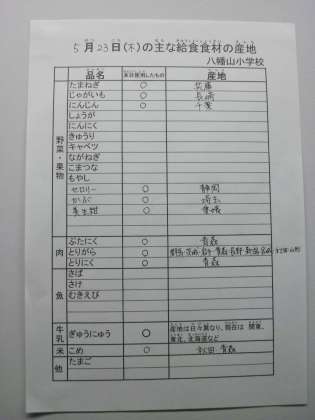 5月23日(木)の主な給食食材の産地
八幡山小学校
品名 本日使用したもの 産地
野菜・果物
たまねぎ ○ 兵庫
じゃがいも ○ 長崎
にんじん ○ 千葉
しょうが
にんにく
きゅうり
キャベツ
ながねぎ
こまつな
もやし
セロリー ○ 静岡
かぶ ○ 埼玉
美生柑 ○ 愛媛
肉
ぶたにく ○ 青森
とりがら ○ 群馬・茨城・岩手・青森・長野・新潟・宮崎
とりにく ○ 青森
魚
さば
さけ
むきえび
牛乳
ぎゅうにゅう ○ 産地は日々異なり、現在は 関東、
東北、北海道など
米
こめ ○ 秋田・青森
他
たまご